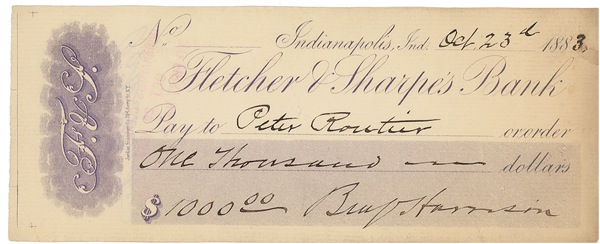 F. & S.
No.
Indianapolis, Ind. Oct 23d 1883
Fletcher & Sharpe's Bank
Pay to Peter Routier or order
One Thousand — dollars
$1000.00 Benj Harrison